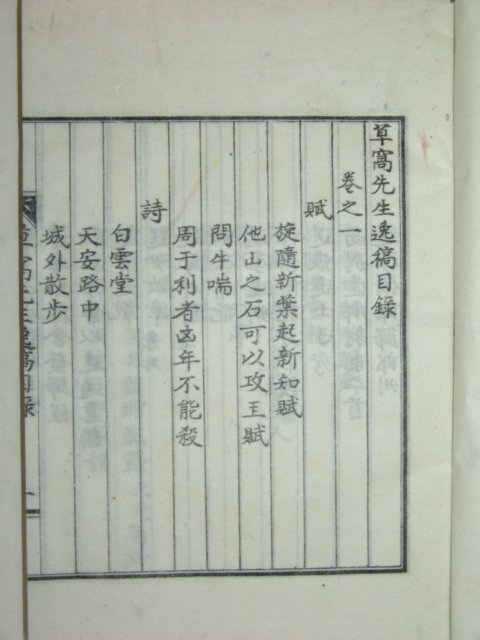 草窩先生逸稿目錄
卷之一
賦
旋隨新葉起新知賦
他山之石可以攻玉賦
問牛喘
周于利者凶年不能殺
詩
白雲堂
天安路中
城外散步